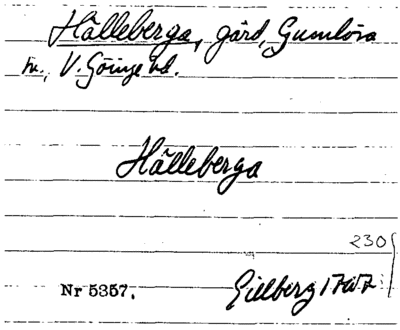 Hälleberga, gård, Gumlösa
sn., V. Göinge hd.
Hälleberga
230
Nr 5357. Gillberg 1767